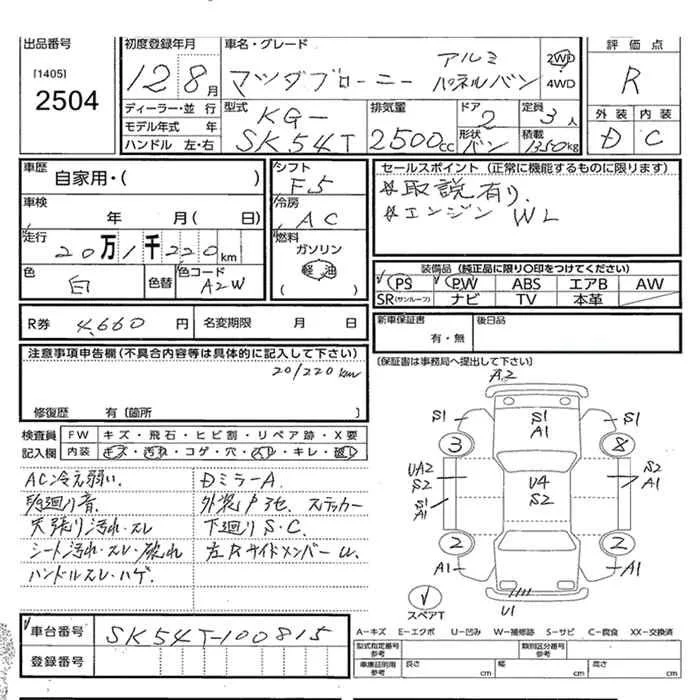 出品番号
[1405]
2504
初度登録年月
12 8月
車名・グレード
マツダブローニー
アルミ
パネルバン
2WD
4WD
評価点
R
外装 内装
D C
ディーラー・並行
モデル年式 年
ハンドル 左・右
型式
KG-
SK54T
排気量
2500cc
ドア
2
形状
バン
定員
3人
積載
1350kg
車歴
自家用・( )
車検
年 月( 日)
走行
20万1千220km
色
白
色替
色コード
A2W
シフト
F5
冷房
AC
燃料
ガソリン
軽油
( )
セールスポイント (正常に機能するものに限ります)
#取説有り.
#エンジン WL
装備品 (純正品に限り〇印をつけてください)
PS PW ABS エアB AW
SR(サンルーフ) ナビ TV 本革
R券 4,660 円
名変期限 月 日
新車保証書
有・無
後日品
[保証書は事務局へ提出して下さい]
注意事項申告欄(不具合内容等は具体的に記入して下さい)
201220km
修復歴 有[箇所 ]
検査員
記入欄
FW キズ・飛石・ヒビ割・リペア跡・X要
内装 キズ・汚れ・コゲ・穴・スレ・キレ・破レ
AC冷え弱い. DミラーA.
天張り汚れ・スレ 下廻りS・C.
シート汚れ・スレ・破れ 左RサイドメンバーU.
ハンドルスレ・ハゲ.
A2
S1 S1 S1
A1
3 8
UA2 S2
U4 S2
S2 A1
S1 A1
2 2
A1 A1
U1
スペアT
車台番号 SK54T-100815
登録番号
A-キズ E-エクボ U-凹み W-補修跡 S-サビ C-腐食 XX-交換済
型式指定番号
参考
類別区分番号
参考
車庫証明用
参考
長さ cm 幅 cm 高さ cm